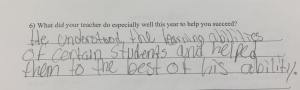 6) What did your teacher do especially well this year to help you succeed?
He understood the learning abilities
of certain students and helped
them to the best of his ability.